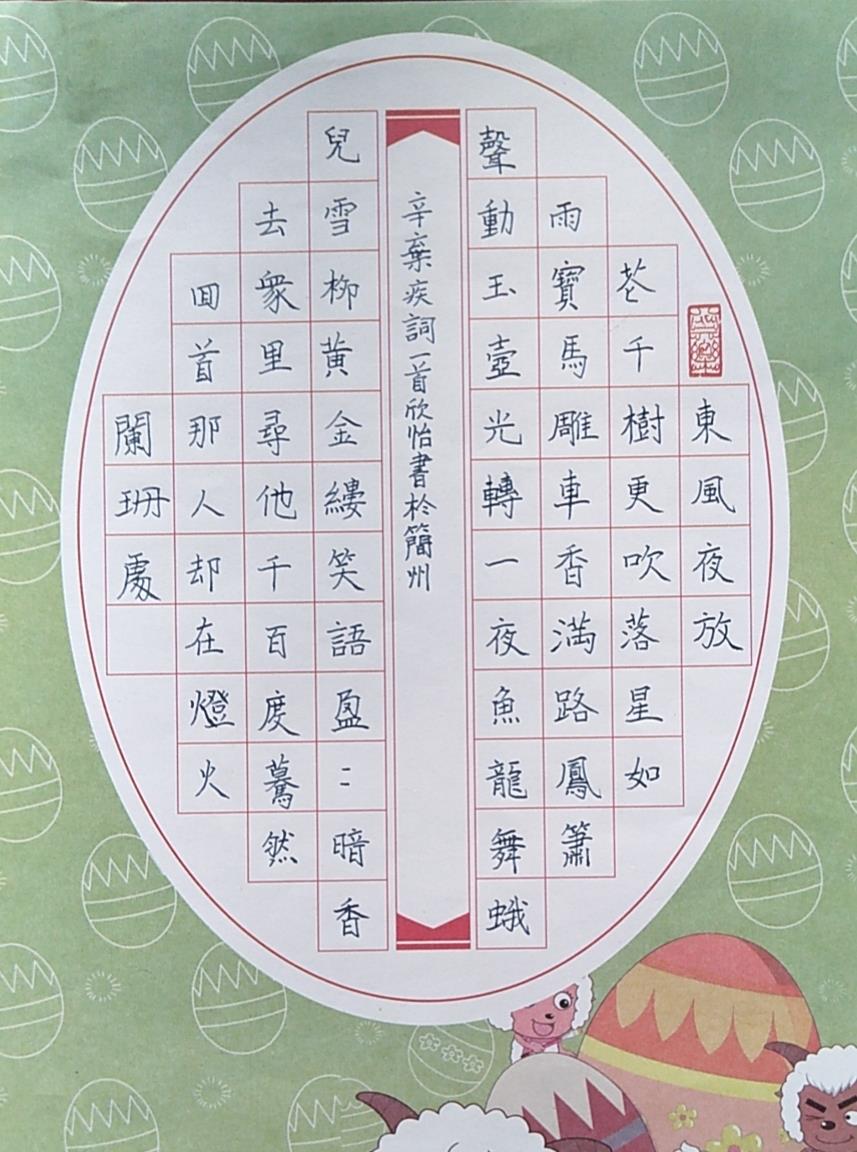 東風夜放
花千樹更吹落星如
雨寶馬雕車香滿路鳳簫
聲動玉壺光轉一夜魚龍舞蛾
辛棄疾詞一首欣怡書於簡州
兒雪柳黄金縷笑語盈〻暗香
去衆里尋他千百度驀然
回首那人却在燈火
闌珊處